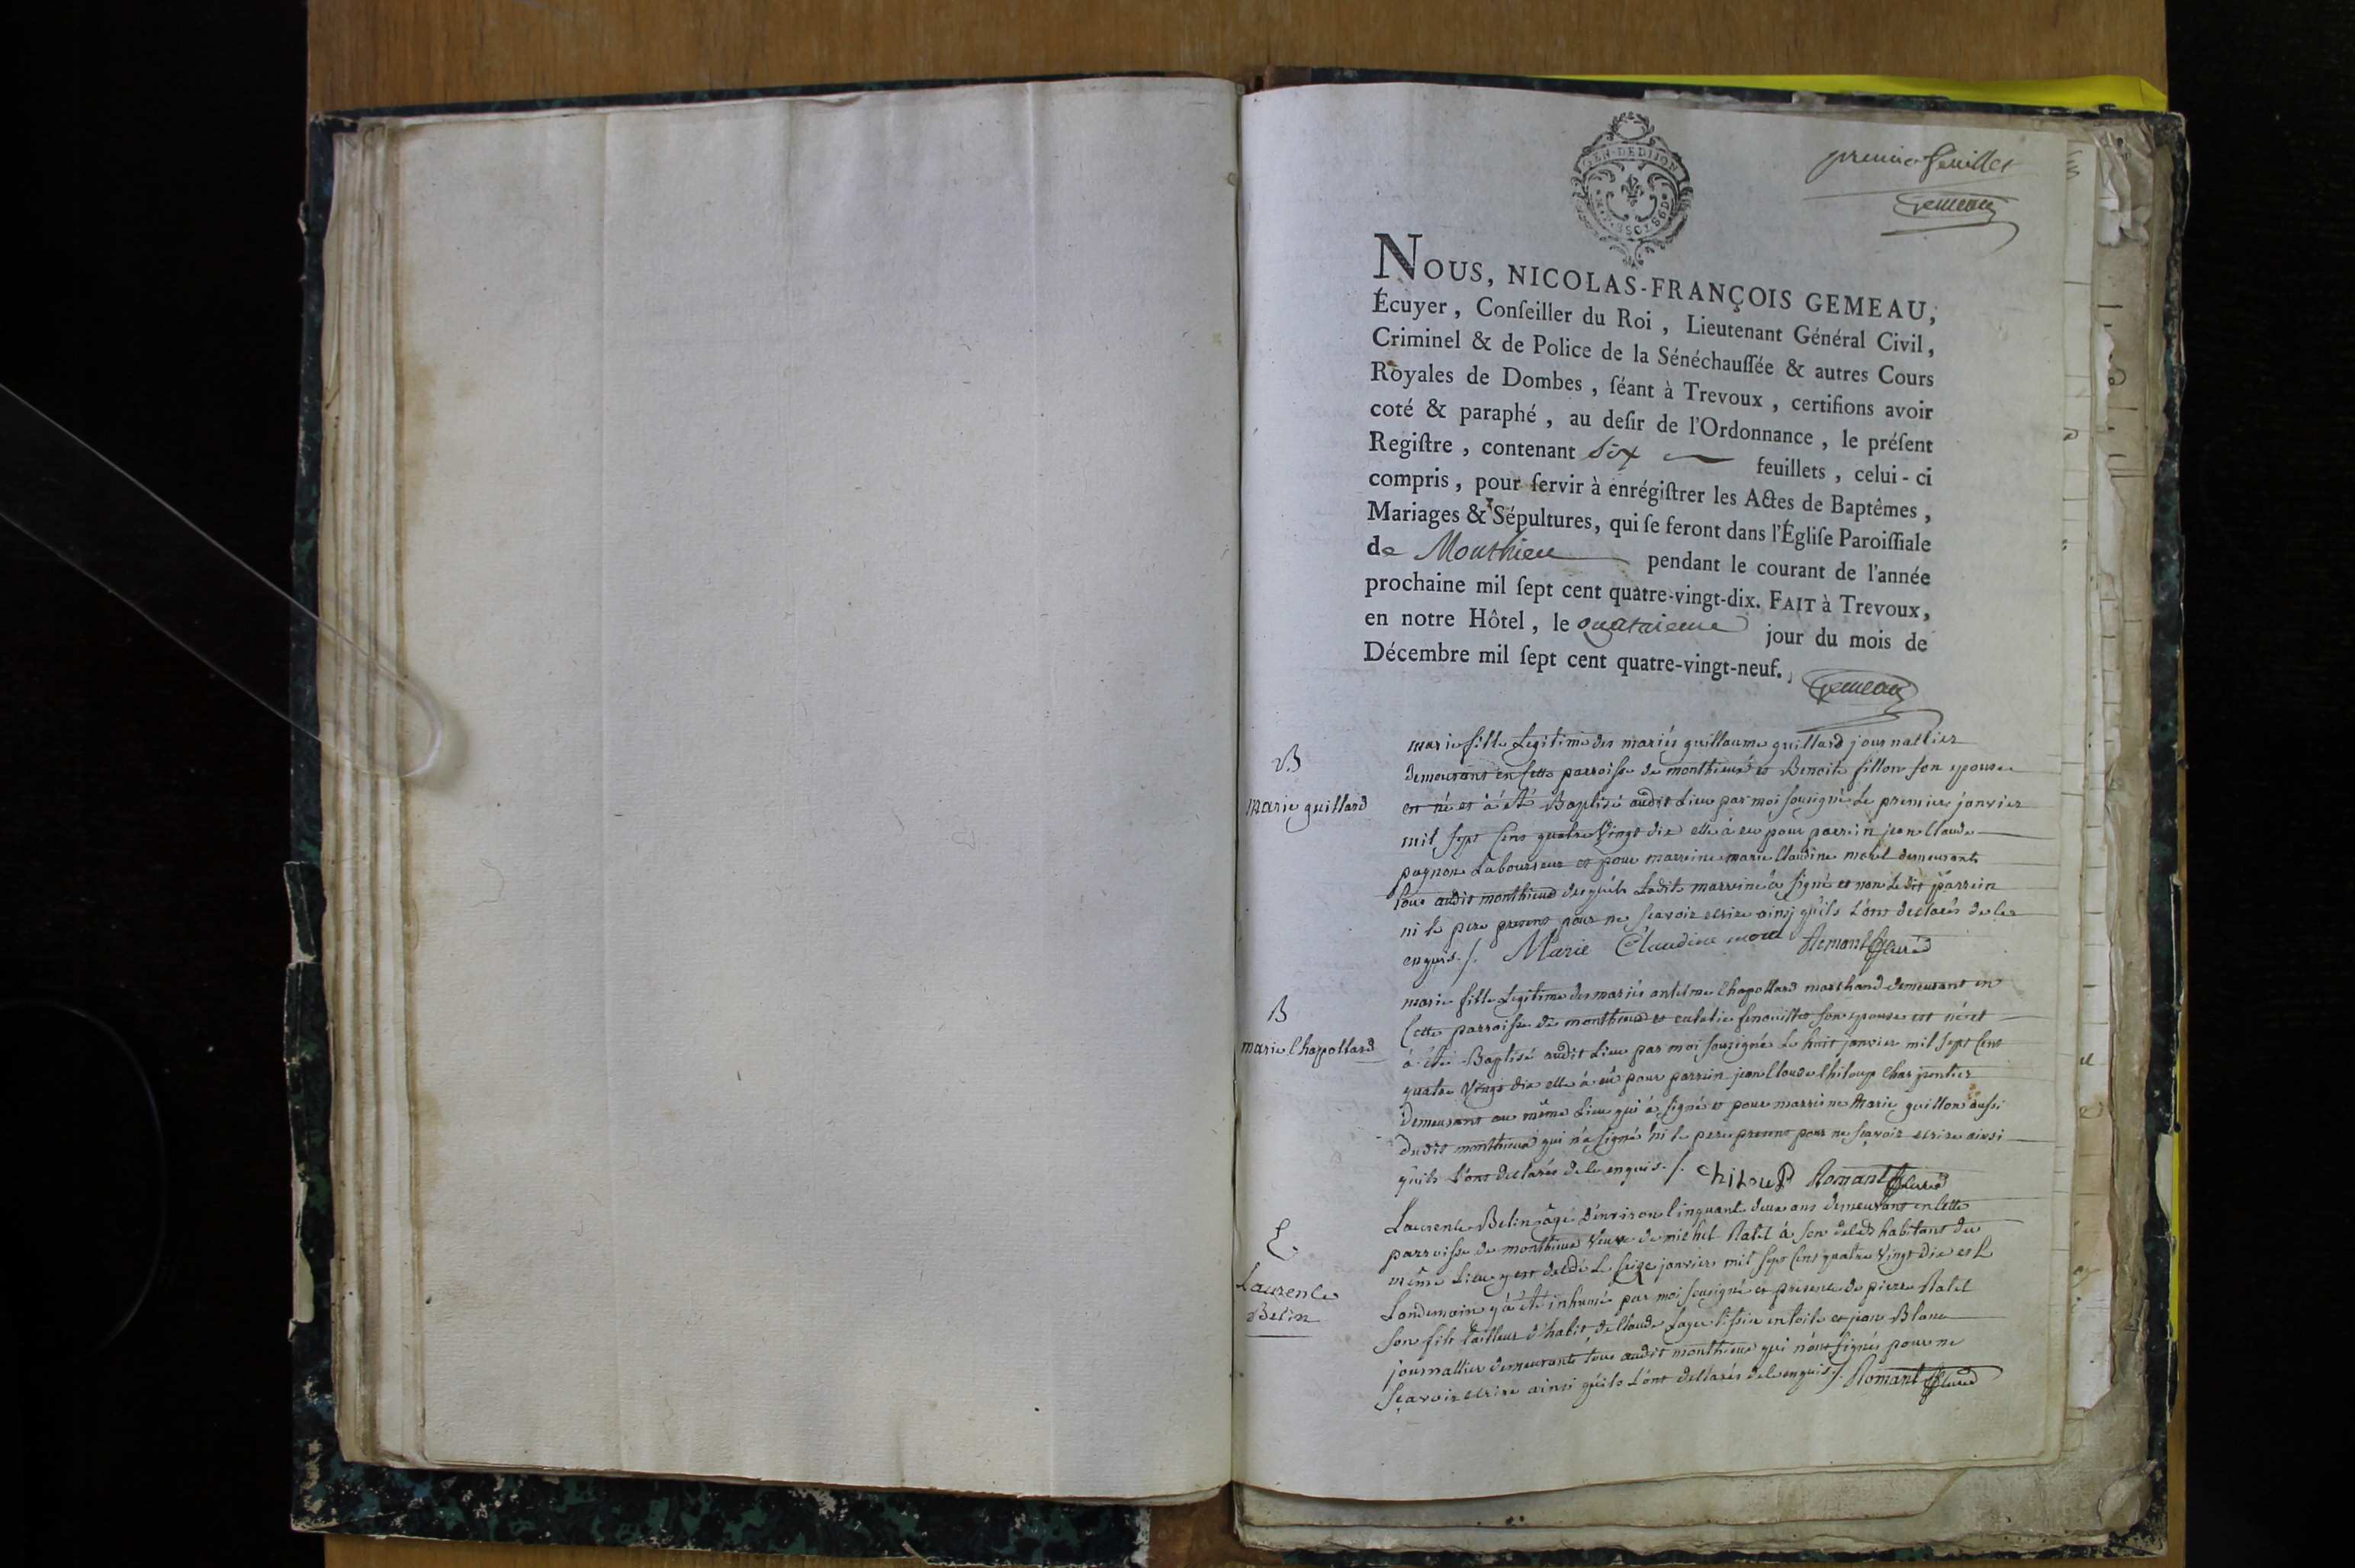 premier feuillet
Gemeau
GEN·DE DIJON
NOUS, NICOLAS-FRANÇOIS GEMEAU,
Écuyer, Conſeiller du Roi, Lieutenant Général Civil,
Criminel & de Police de la Sénéchauſſée & autres Cours
Royales de Dombes, ſéant à Trevoux, certifions avoir
coté & paraphé, au deſir de l'Ordonnance, le préſent
Regiſtre, contenant Six feuillets, celui-ci
compris, pour ſervir à enrégiſtrer les Actes de Baptêmes,
Mariages & Sépultures, qui ſe feront dans l'Égliſe Paroiſſiale
de Monthieu pendant le courant de l'année
prochaine mil ſept cent quatre-vingt-dix. FAIT à Trevoux,
en notre Hôtel, le quatrieme jour du mois de
Décembre mil ſept cent quatre-vingt-neuf.
Gemeau
B
marie guillard
marie fille Legitime des mariés guillaume guillard journallier
demeurant en sette parroisse de monthieux et Benoite fillon son epouse
est né et à été Baptisé audit Lieu par moi sousigné Le premier janvier
mil sept cens quatre vingt dix elle à eu pour parrein jean claude
pagnon Laboureur et pour marreine marie claudine morel demeurants
tous audit monthieux desquels Ladite marreine à signé et non Ledit parrein
ni le pere present pour ne sçavoir ecrire ainsi qu'ils L'ont declarés de les
enquis ./. Marie Claudine morel Romant Curé
B
marie Chapollard
marie fille Legitime des mariés antelme Chapollard marchand demeurant en
Cette parroisse de monthieux et eulalie fenouillet son epouse est né et
à été Baptisé audit Lieu par moi sousigné Le huit janvier mil sept cens
quatre vingt dix elle à eü pour parrein jean Claude Chiloup Charpentier
demeurant au même Lieu qui à signé et pour marreine Marie guillon aussi
dudit monthieux qui n'a signé ni le pere present pour ne sçavoir ecrire ainsi
qu'ils L'ont declarés de les enquis ./. chiLouP Romant Curé
E
Laurence
Belin
Laurence Belin âgé d'environ Cinquant deux ans demeurant en Cette
parroisse de monthieux veuve de michel Ratel à son deceds habitant du
même Lieu y est decedé Le seize janvier mil sept cens quatre vingt dix et L
Landemain y à été inhumé par moi sousigné en presence de pierre Ratel
son fils tailleur d'habit, de Claude Lager tissier en toile et jean Blanc
journallier demeurants tous audit monthieux qui n'ont signés pour ne
sçavoir ecrire ainsi qu'ils L'ont declarés de les enquis ./. Romant Curé